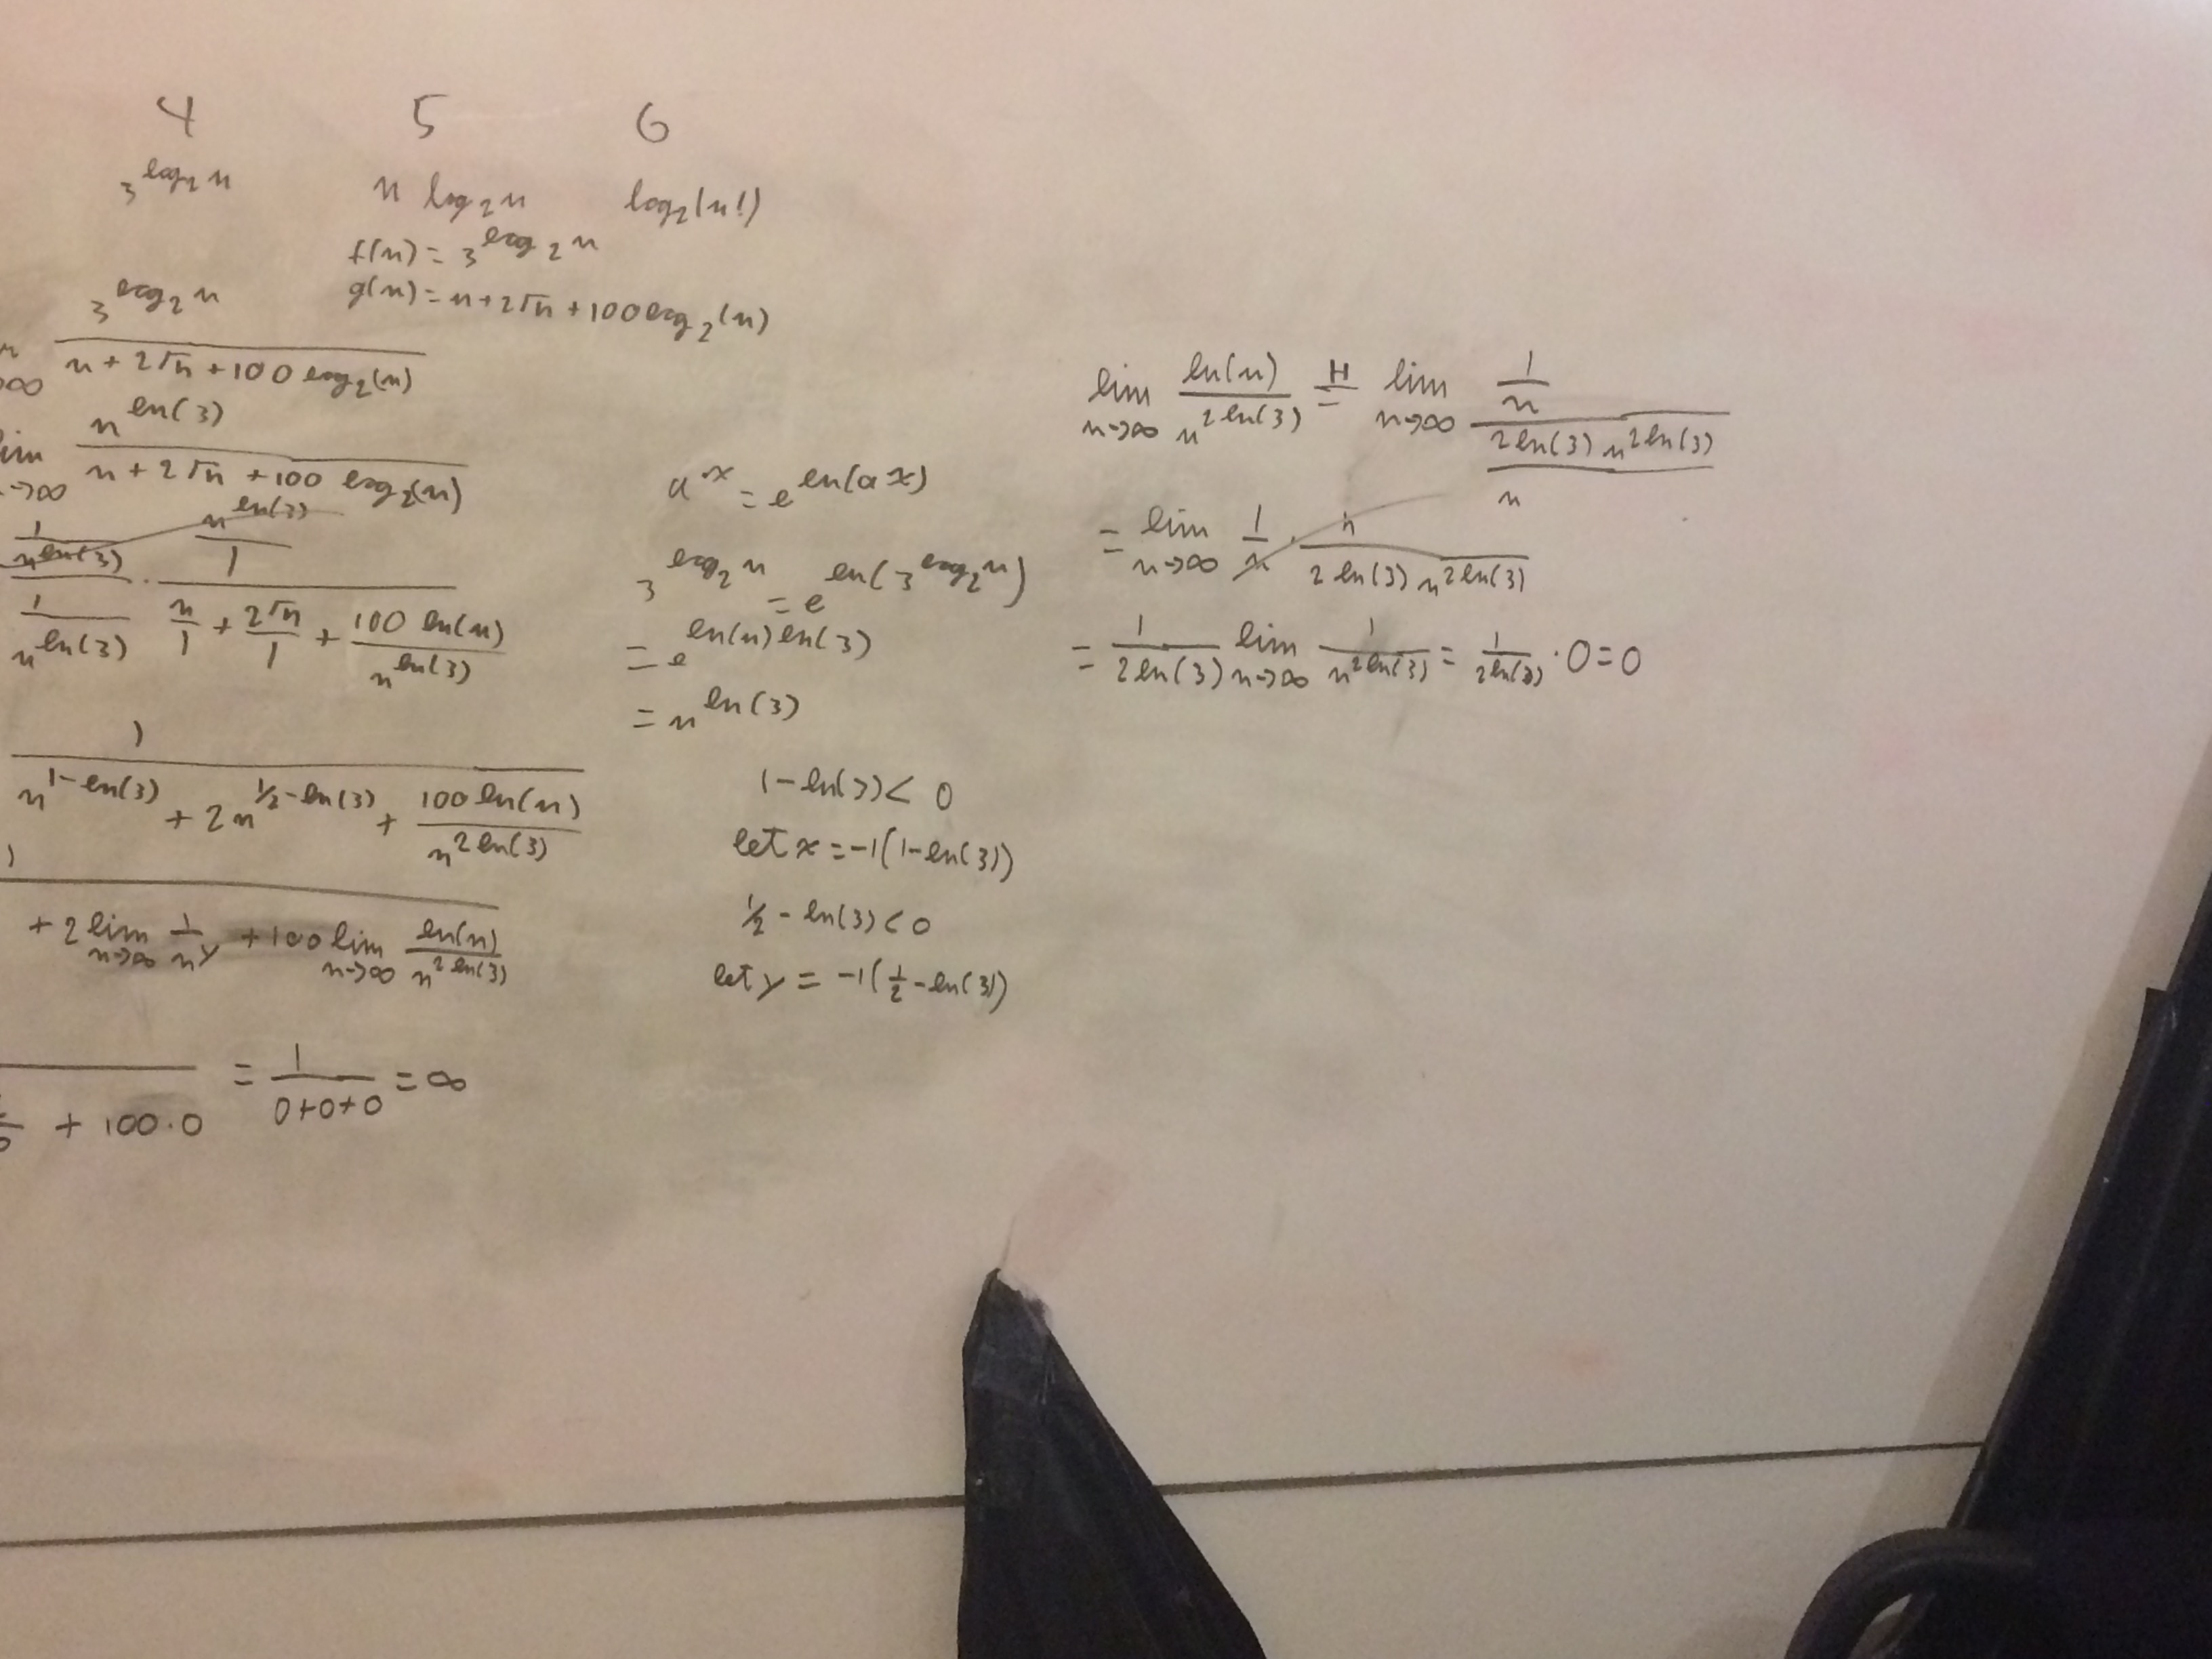 4 5 6
3^{log_2 n} n log_2 n log_2(n!)
f(n) = 3^{log_2 n}
g(n) = n + 2√n + 100 log_2(n)
3^{log_2 n} / (n + 2√n + 100 log_2(n))
∞
lim n→∞ n^{ln(3)} / (n + 2√n + 100 log_2(n))
(1/n^{ln(3)}) / (1/n^{ln(3)}) · (n^{ln(3)}/1) / (n/1 + 2√n/1 + 100 ln(n)/n^{ln(3)})
1 / (n^{1-ln(3)} + 2n^{½-ln(3)} + 100 ln(n)/n^{2 ln(3)})
1
+ 2 lim n→∞ 1/n^y + 100 lim n→∞ ln(n)/n^{2 ln(3)}
+ 100·0 = 1/(0+0+0) = ∞
a^x = e^{ln(a^x)}
3^{log_2 n} = e^{ln(3^{log_2 n})}
= e^{ln(n) ln(3)}
= n^{ln(3)}
1 - ln(3) < 0
let x = -1(1-ln(3))
½ - ln(3) < 0
let y = -1(1/2 - ln(3))
lim n→∞ ln(n)/n^{2 ln(3)} =^H lim n→∞ (1/n) / (2 ln(3) n^{2 ln(3)} / n)
= lim n→∞ 1/n · n/(2 ln(3) n^{2 ln(3)})
= 1/(2 ln(3)) lim n→∞ 1/n^{2 ln(3)} = 1/(2 ln(3)) · 0 = 0